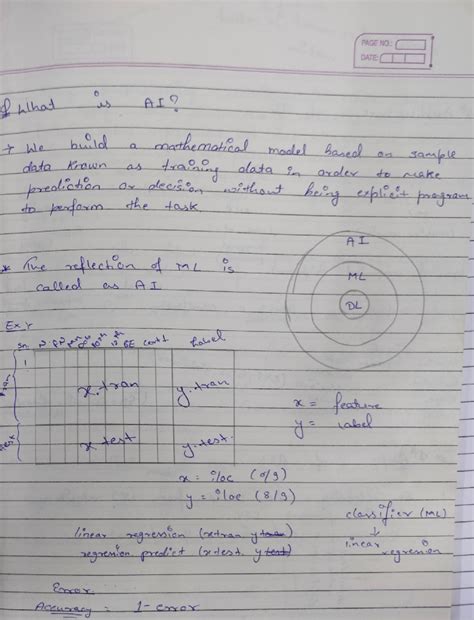 PAGE NO.:
DATE:
What is AI?
→ We build a mathematical model based on sample
data known as training data in order to make
prediction or decision without being explicit program
to perform the task
AI
ML
DL
* The reflection of ML is
called as AI
Ex.
Sn. GE Label
1
x.tran
y.tran
x test
y.test.
x = feature
y = Label
x = iloc (0/9)
y = iloc (8/9)
classifier (ML)
↓
linear regression
linear regression (x-tran y tran)
regression predict (x-test. y test)
Error.
Accuracy = 1-error